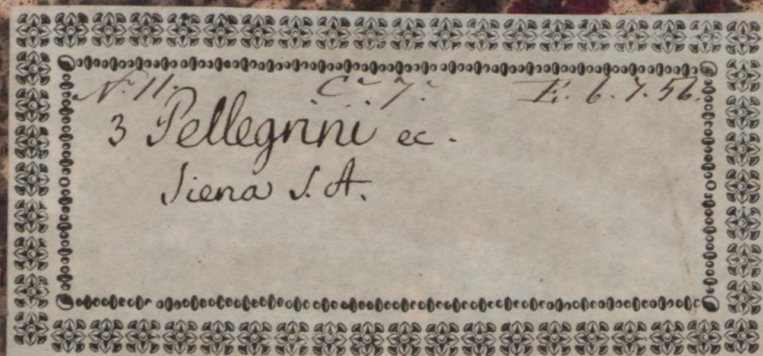 N. 11. C. 7. E. 6. 7. 56.
3 Pellegrini ec.
Siena S. A.